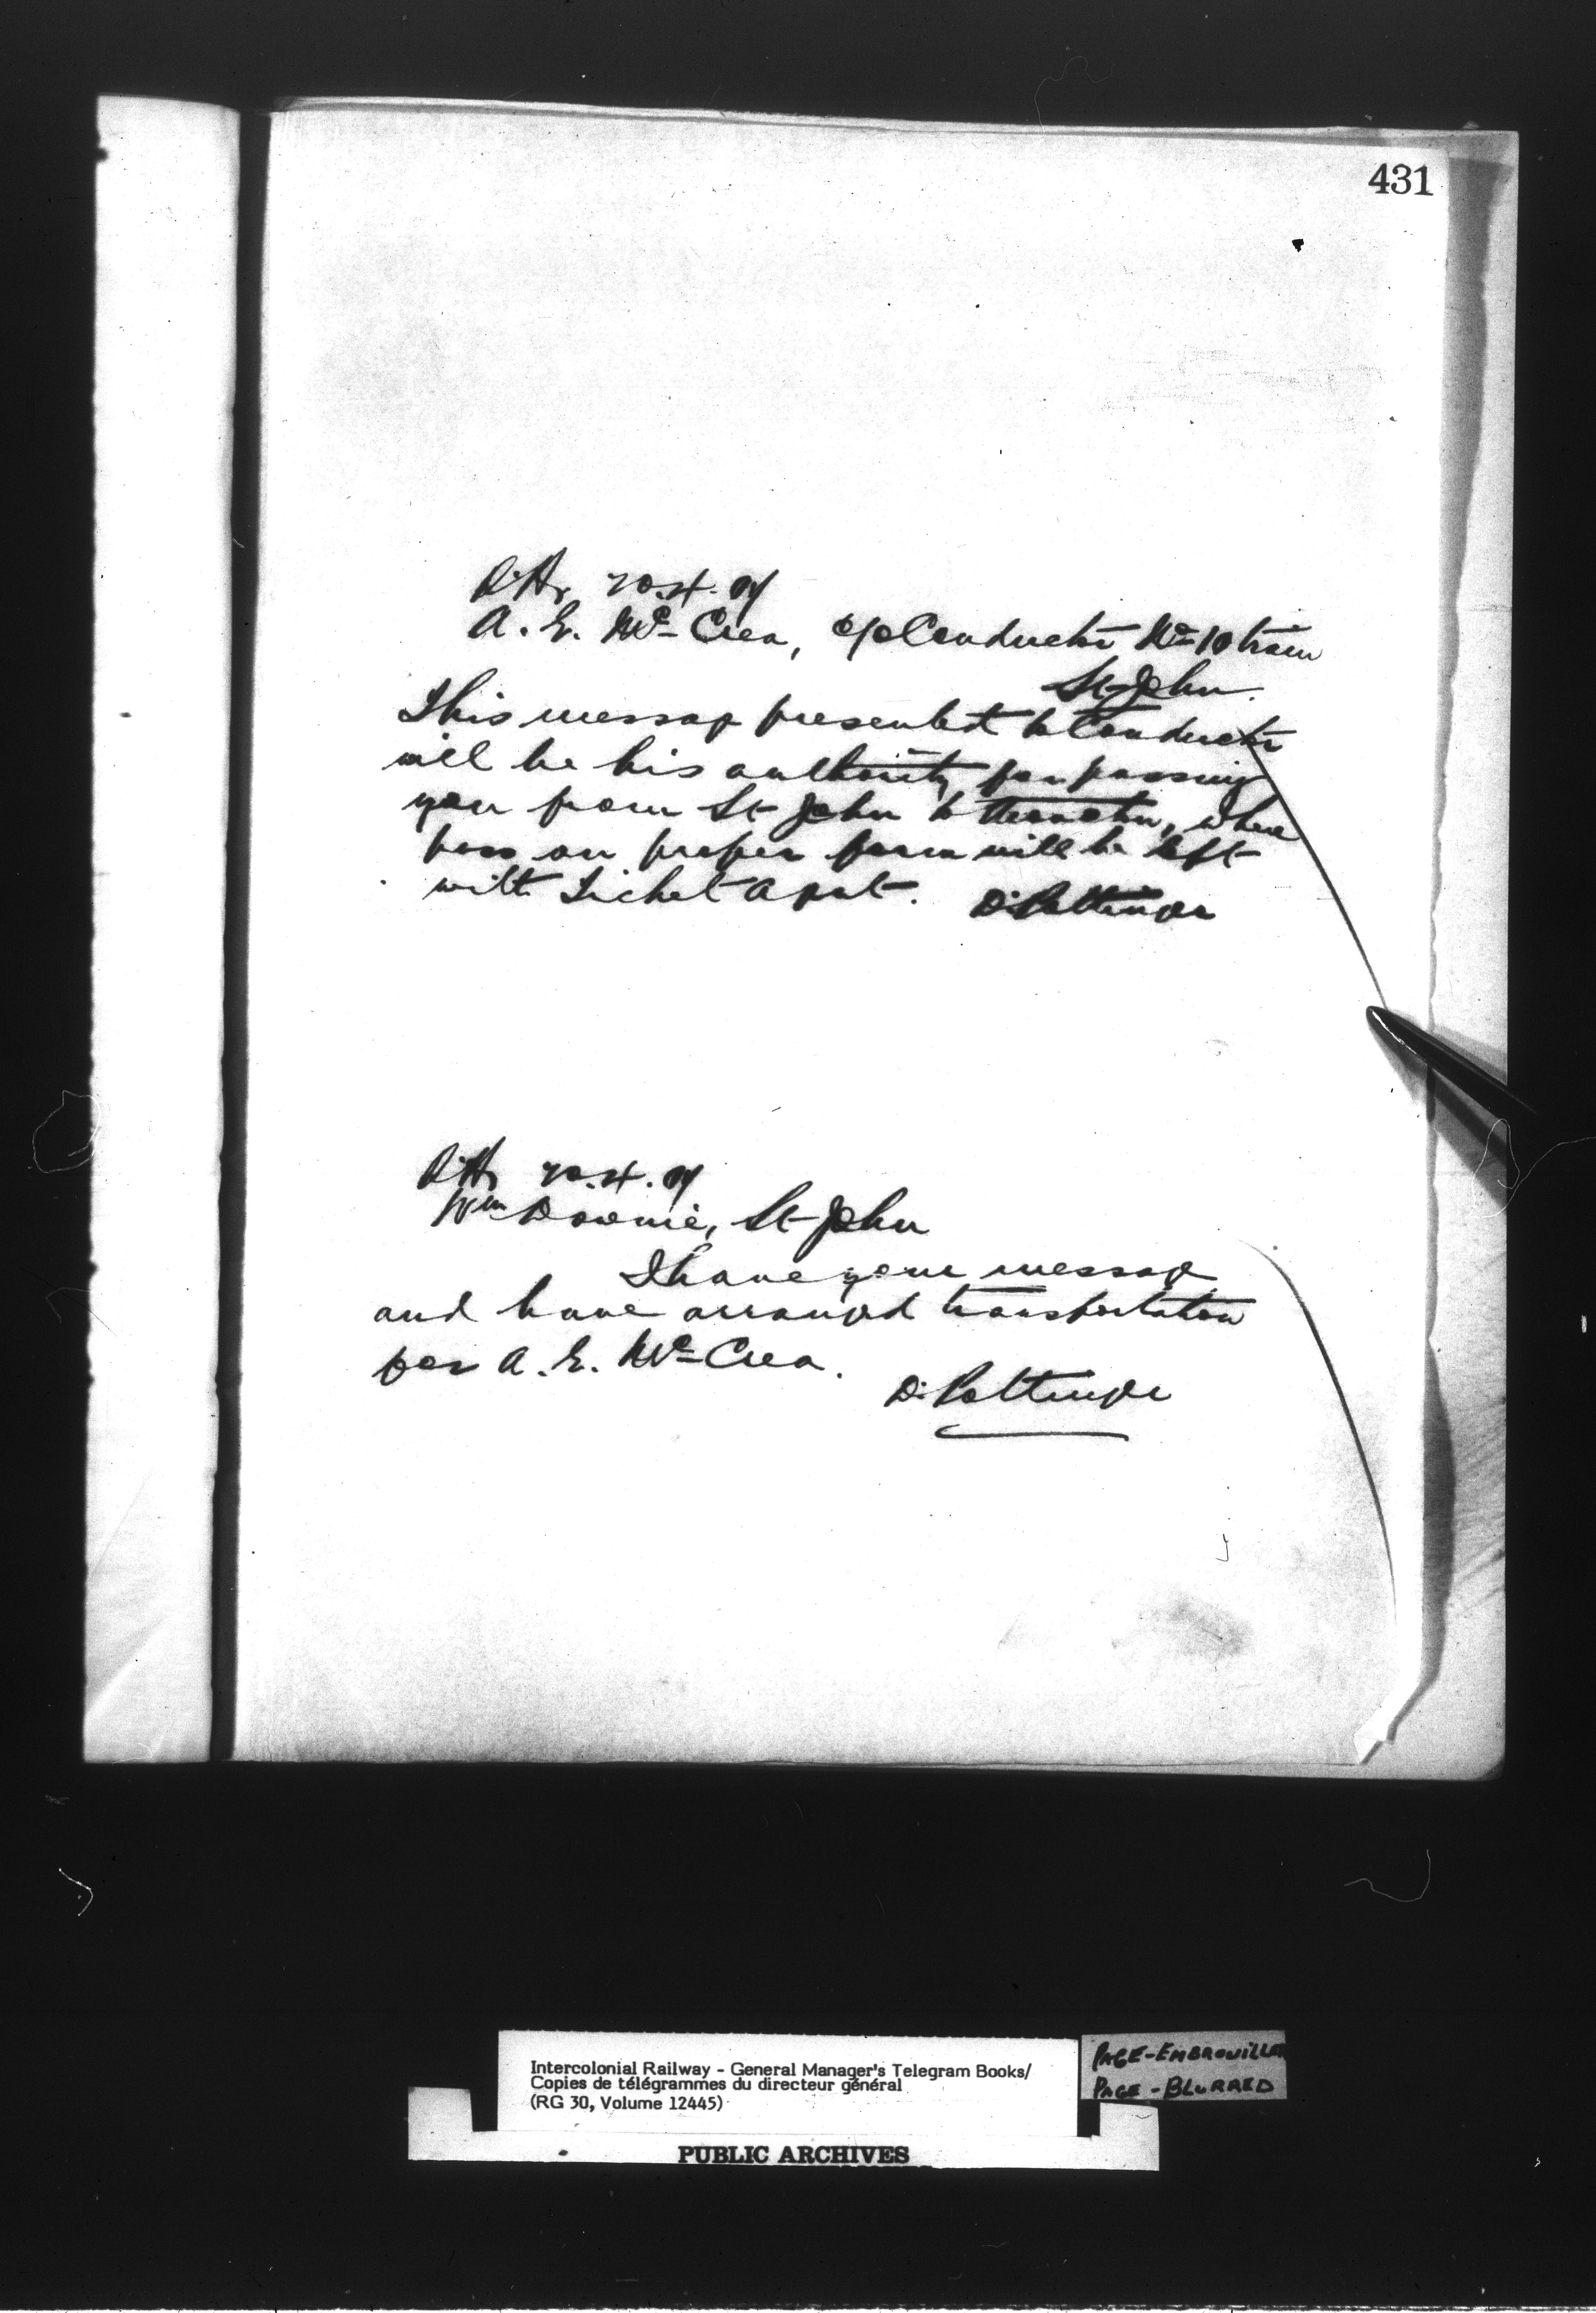 431
20.4.
A. E. McCrea, c/o Conductor No 10 train
St John.
This message presented to Conductor
will be his authority for passing
you from St John to Moncton, where
pass on proper form will be left
with Ticket Agent. D. Pottinger
20.4.
Wm Downie, St John
I have your message
and have arranged transportation
for A. E. McCrea.
D. Pottinger
Intercolonial Railway - General Manager's Telegram Books/
Copies de télégrammes du directeur général
(RG 30, Volume 12445)
PAGE-EMBROUILLÉE
PAGE-BLURRED
PUBLIC ARCHIVES